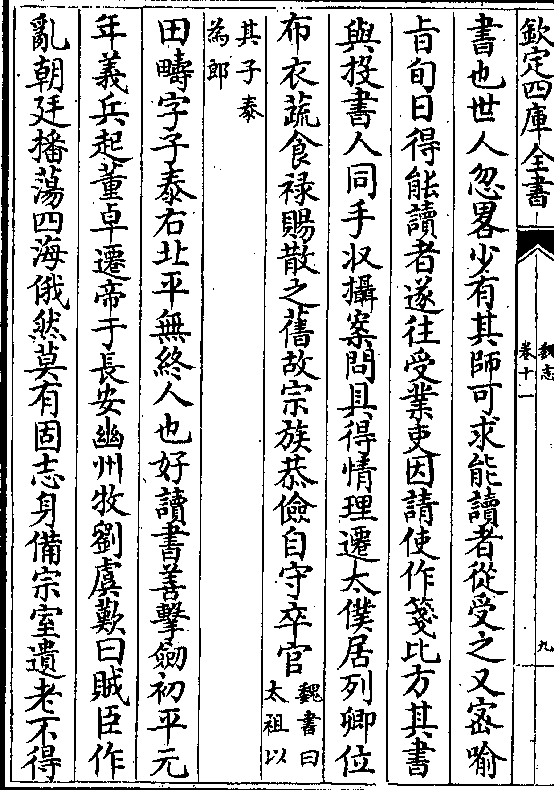 欽定四庫全書
魏志
卷十一
九
書也世人忽畧少有其師可求能讀者從受之又宻喻
㫖旬日得能讀者遂往受業吏因請使作箋比方其書
與投書人同手収攝案問具得情理遷太僕居列卿位
布衣蔬食禄賜散之舊故宗族恭儉自守卒官
魏書曰
太祖以
其子泰
為郎
田疇字子泰右北平無終人也好讀書善擊劒初平元
年義兵起董卓遷帝于長安幽州牧劉虞歎曰賊臣作
亂朝廷播蕩四海俄然莫有固志身備宗室遺老不得